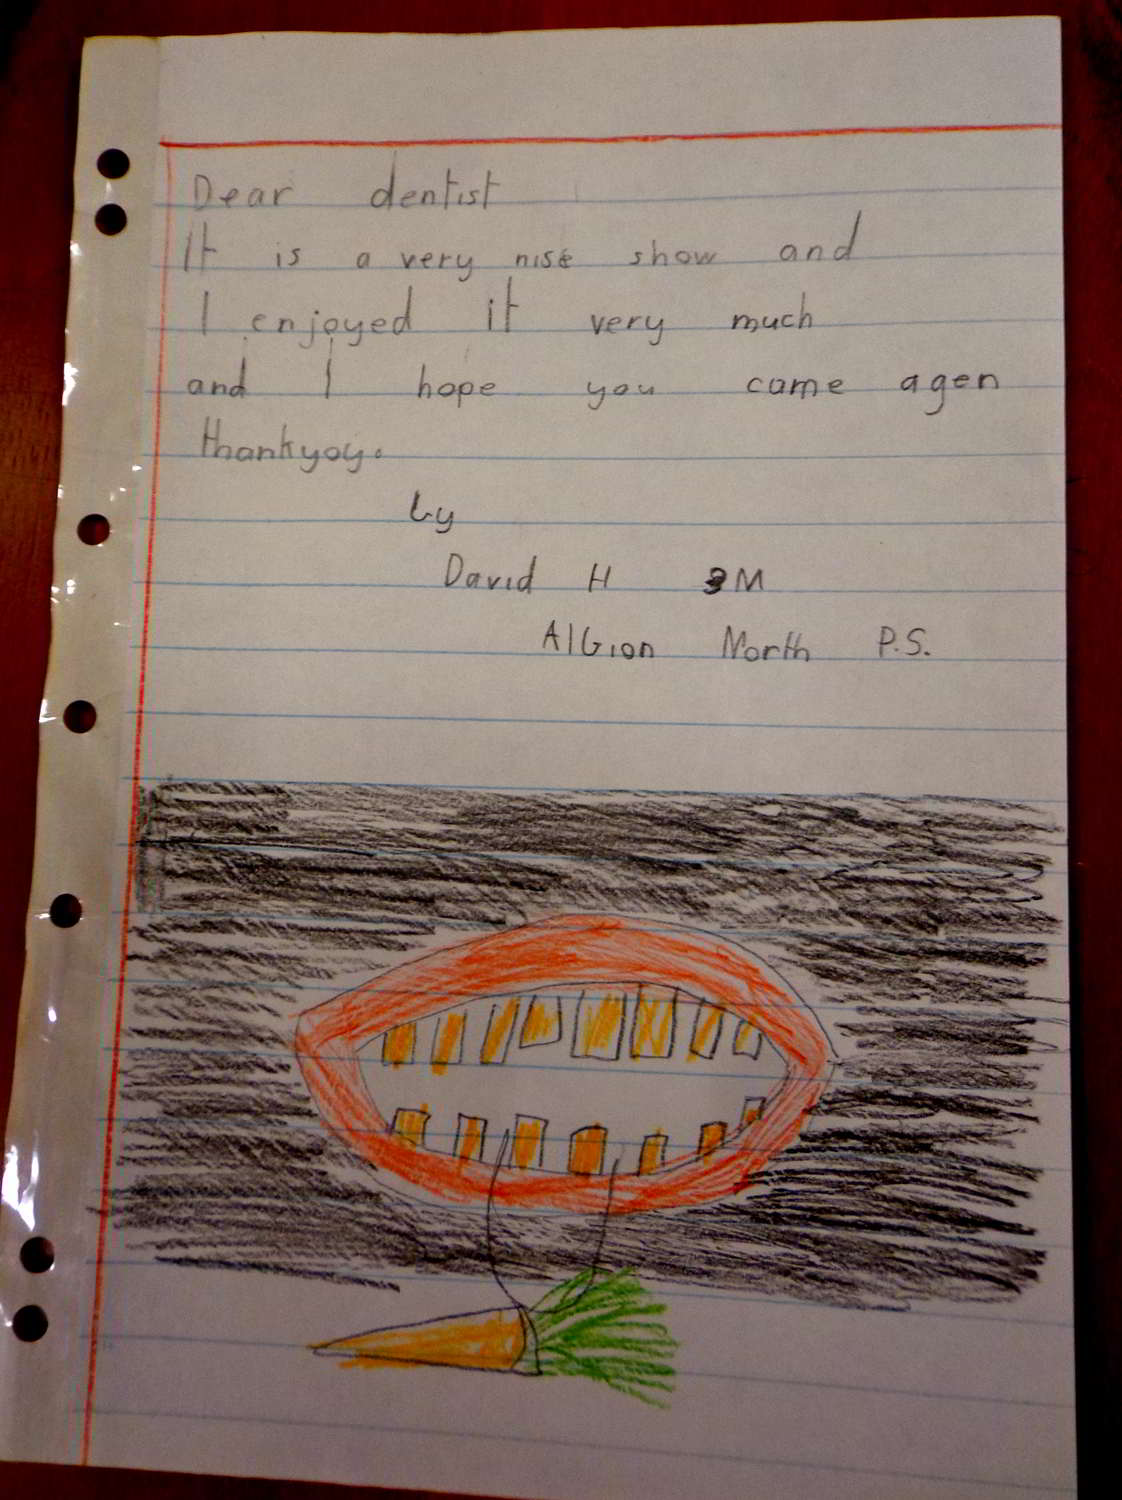 Dear dentist
It is a very nise show and
I enjoyed it very much
and I hope you came agen
thankyoy.
by
David H 3M
Albion North P.S.